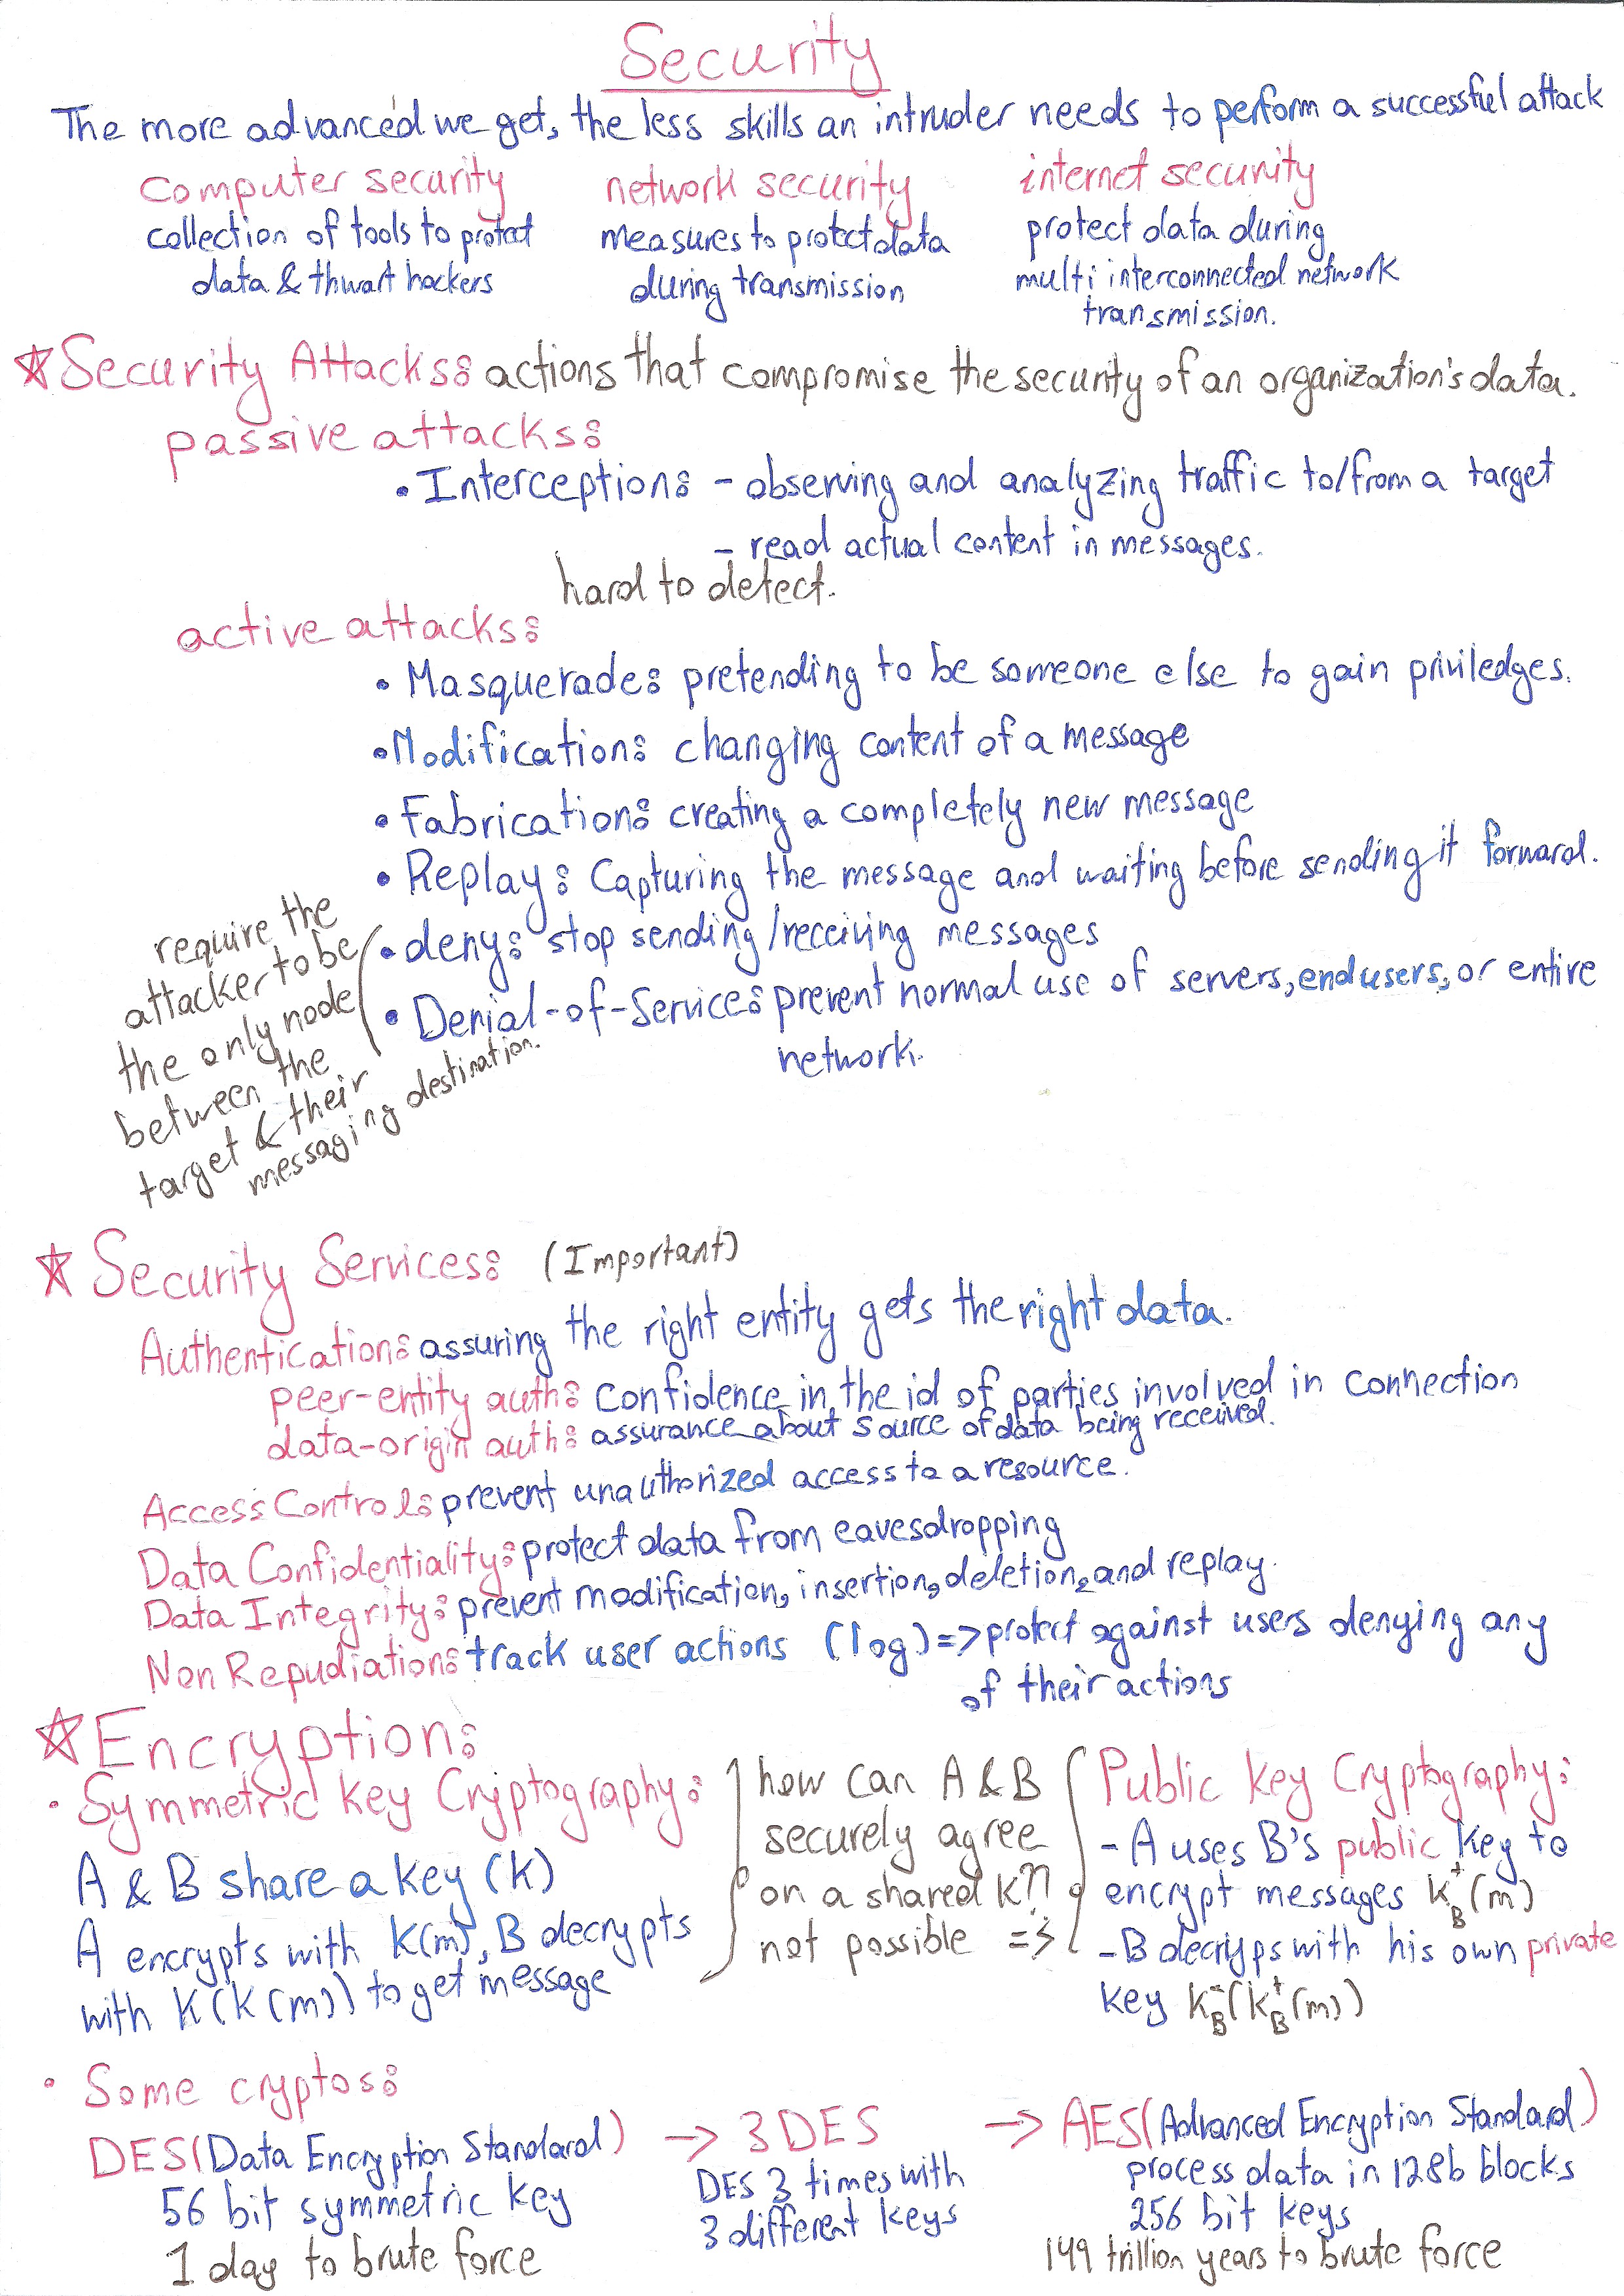 Security
The more advanced we get, the less skills an intruder needs to perform a successful attack
computer security
collection of tools to protect
data & thwart hackers
network security
measures to protect data
during transmission
internet security
protect data during
multi interconnected network
transmission.
☆ Security Attacks: actions that compromise the security of an organization's data.
passive attacks:
• Interception: - observing and analyzing traffic to/from a target
- read actual content in messages.
hard to detect.
active attacks:
• Masquerade: pretending to be someone else to gain priviledges.
• Modification: changing content of a message
• Fabrication: creating a completely new message
• Replay: Capturing the message and waiting before sending it forward.
• deny: stop sending/receiving messages
• Denial-of-Service: prevent normal use of servers, end users, or entire
network.
require the
attacker to be
the only node
between the
target & their
messaging destination.
☆ Security Services: (Important)
Authentication: assuring the right entity gets the right data.
peer-entity auth: confidence in the id of parties involved in connection
data-origin auth: assurance about source of data being received.
Access Control: prevent unauthorized access to a resource.
Data Confidentiality: protect data from eavesdropping
Data Integrity: prevent modification, insertion, deletion, and replay.
Non Repudiation: track user actions (log) => protect against users denying any
of their actions
☆ Encryption:
• Symmetric key Cryptography:
A & B share a key (k)
A encrypts with K(m), B decrypts
with K(K(m)) to get message
how can A & B
securely agree
on a shared K??
not possible =>
Public key Cryptography:
- A uses B's public key to
encrypt messages K⁺B(m)
- B decryps with his own private
key K⁻B(K⁺B(m))
• Some cryptos:
DES(Data Encryption Standard)
56 bit symmetric key
1 day to brute force
→ 3DES
DES 3 times with
3 different keys
→ AES(Advanced Encryption Standard)
process data in 128b blocks
256 bit keys
149 trillion years to brute force